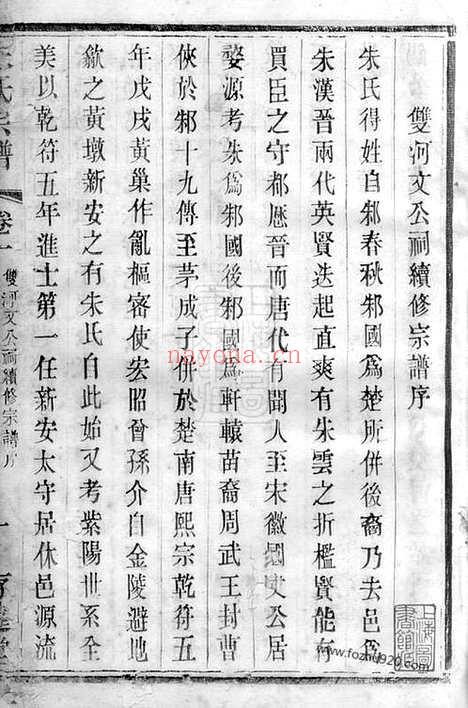 雙河文公祠續修宗譜序
朱氏得姓自邾春秋邾國爲楚所併後裔乃去邑爲
朱漢晉兩代英賢迭起直爽有朱雲之折檻賢能有
買臣之守都歷晉而唐代有聞人至宋徽國文公居
婺源考朱爲邾國後邾國爲軒轅苗裔周武王封曹
俠於邾十九傳至茅成子併於楚南唐熙宗乾符五
年戊戌黃巢作亂樞密使宏昭曾孫介自金陵避地
歙之黃墩新安之有朱氏自此始又考紫陽世系全
美以乾符五年進士第一任新安太守居休邑源流
氏宗譜
卷一
雙河文公祠續修宗譜序
一
上海圖書館藏
nayona.cn
www.fozhu920.com